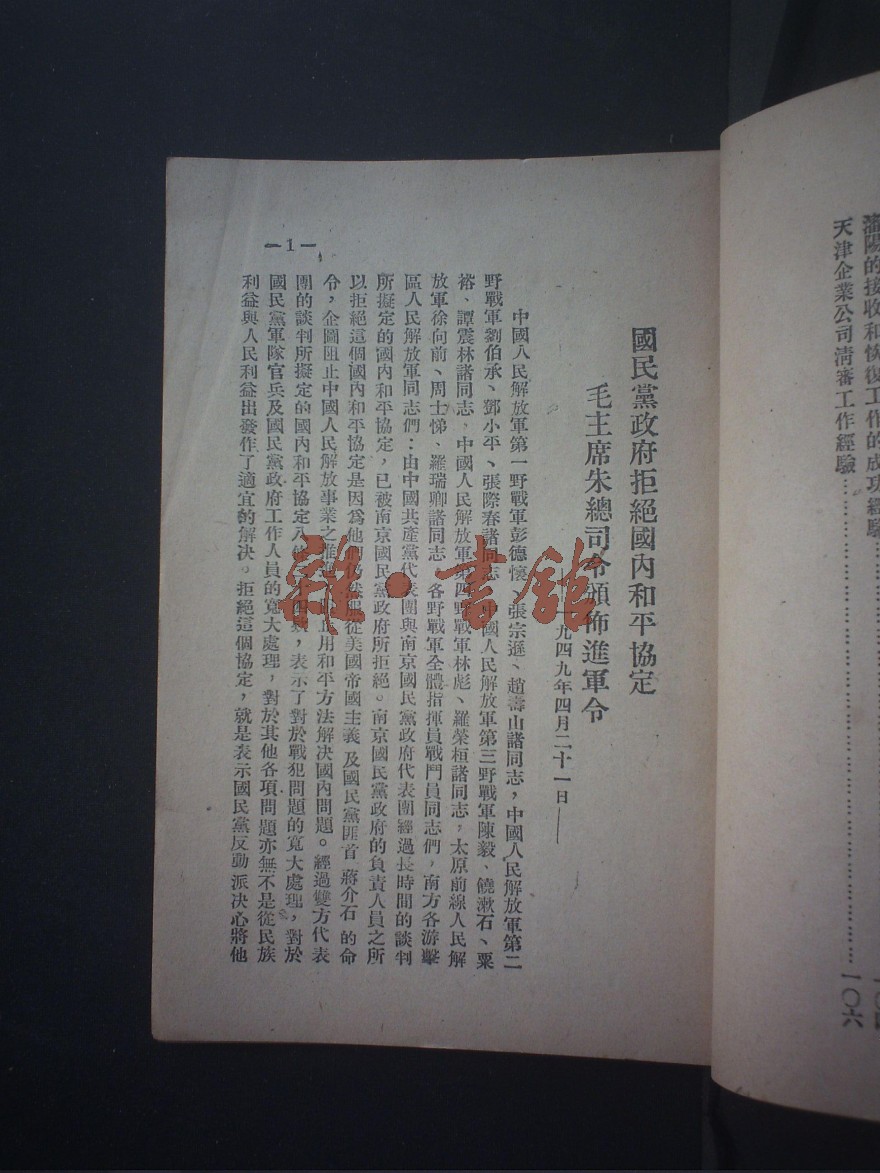 瀋陽的接收和恢復工作的成功經驗
天津企業公司清審工作經驗……一〇六
國民黨政府拒絕國內和平協定
毛主席朱總司令頒佈進軍令
一九四九年四月二十一日——
中國人民解放軍第一野戰軍彭德懷、張宗遜、趙壽山諸同志，中國人民解放軍第二
野戰軍劉伯承、鄧小平、張際春諸同志，中國人民解放軍第三野戰軍陳毅、饒漱石、粟
裕、譚震林諸同志，中國人民解放軍第四野戰軍林彪、羅榮桓諸同志，太原前線人民解
放軍徐向前、周士悌、羅瑞卿諸同志，各野戰軍全體指揮員戰鬥員同志們，南方各游擊
區人民解放軍同志們：由中國共產黨代表團與南京國民黨政府代表團經過長時間的談判
所擬定的國內和平協定，已被南京國民黨政府所拒絕。南京國民黨政府的負責人員之所
以拒絕這個國內和平協定是因爲他們仍然服從美國帝國主義及國民黨匪首蔣介石的命
令，企圖阻止中國人民解放事業之推進，阻止用和平方法解決國內問題。經過雙方代表
團的談判所擬定的國內和平協定八條二十四款，表示了對於戰犯問題的寬大處理，對於
國民黨軍隊官兵及國民黨政府工作人員的寬大處理，對於其他各項問題亦無不是從民族
利益與人民利益出發作了適宜的解決。拒絕這個協定，就是表示國民黨反動派決心將他
—1—
雜·書館